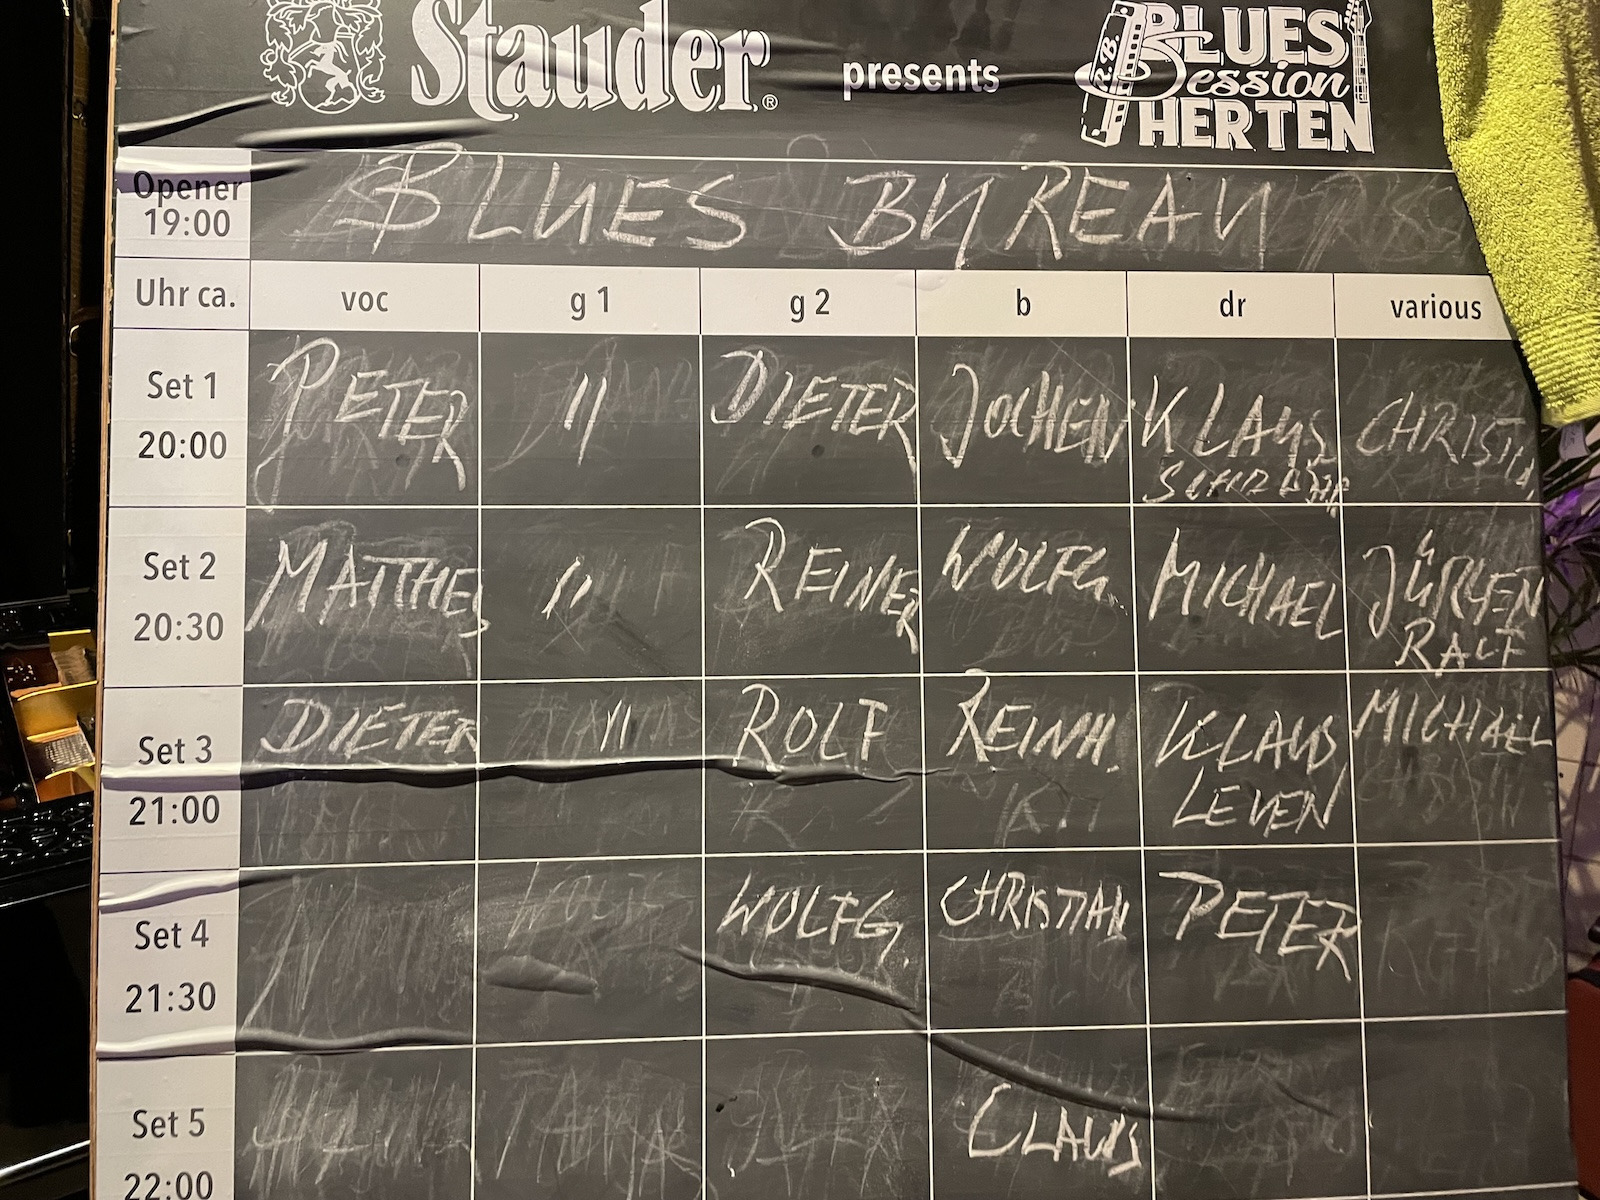 Stauder® presents BLUES Session HERTEN
R.B.
Opener 19:00 BLUES BUREAU
Uhr ca. voc g 1 g 2 b dr various
Set 1 20:00 PETER // DIETER JOCHEN KLAUS CHRISTIAN
Set 2 20:30 MATTHES // REINER WOLFG. MICHAEL JÜRGEN RALF
Set 3 21:00 DIETER // ROLF REINH. KLAUS LEVEN MICHAEL
Set 4 21:30 WOLFG CHRISTIAN PETER
Set 5 22:00 CLAUS